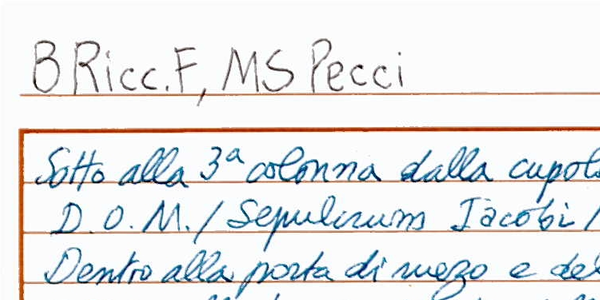 B Ricc. F, MS Pecci
Sotto alla 3ª colonna dalla cupola
D.O.M. / Sepulcrum Iacobi /
Dentro alla porta di mezo e del